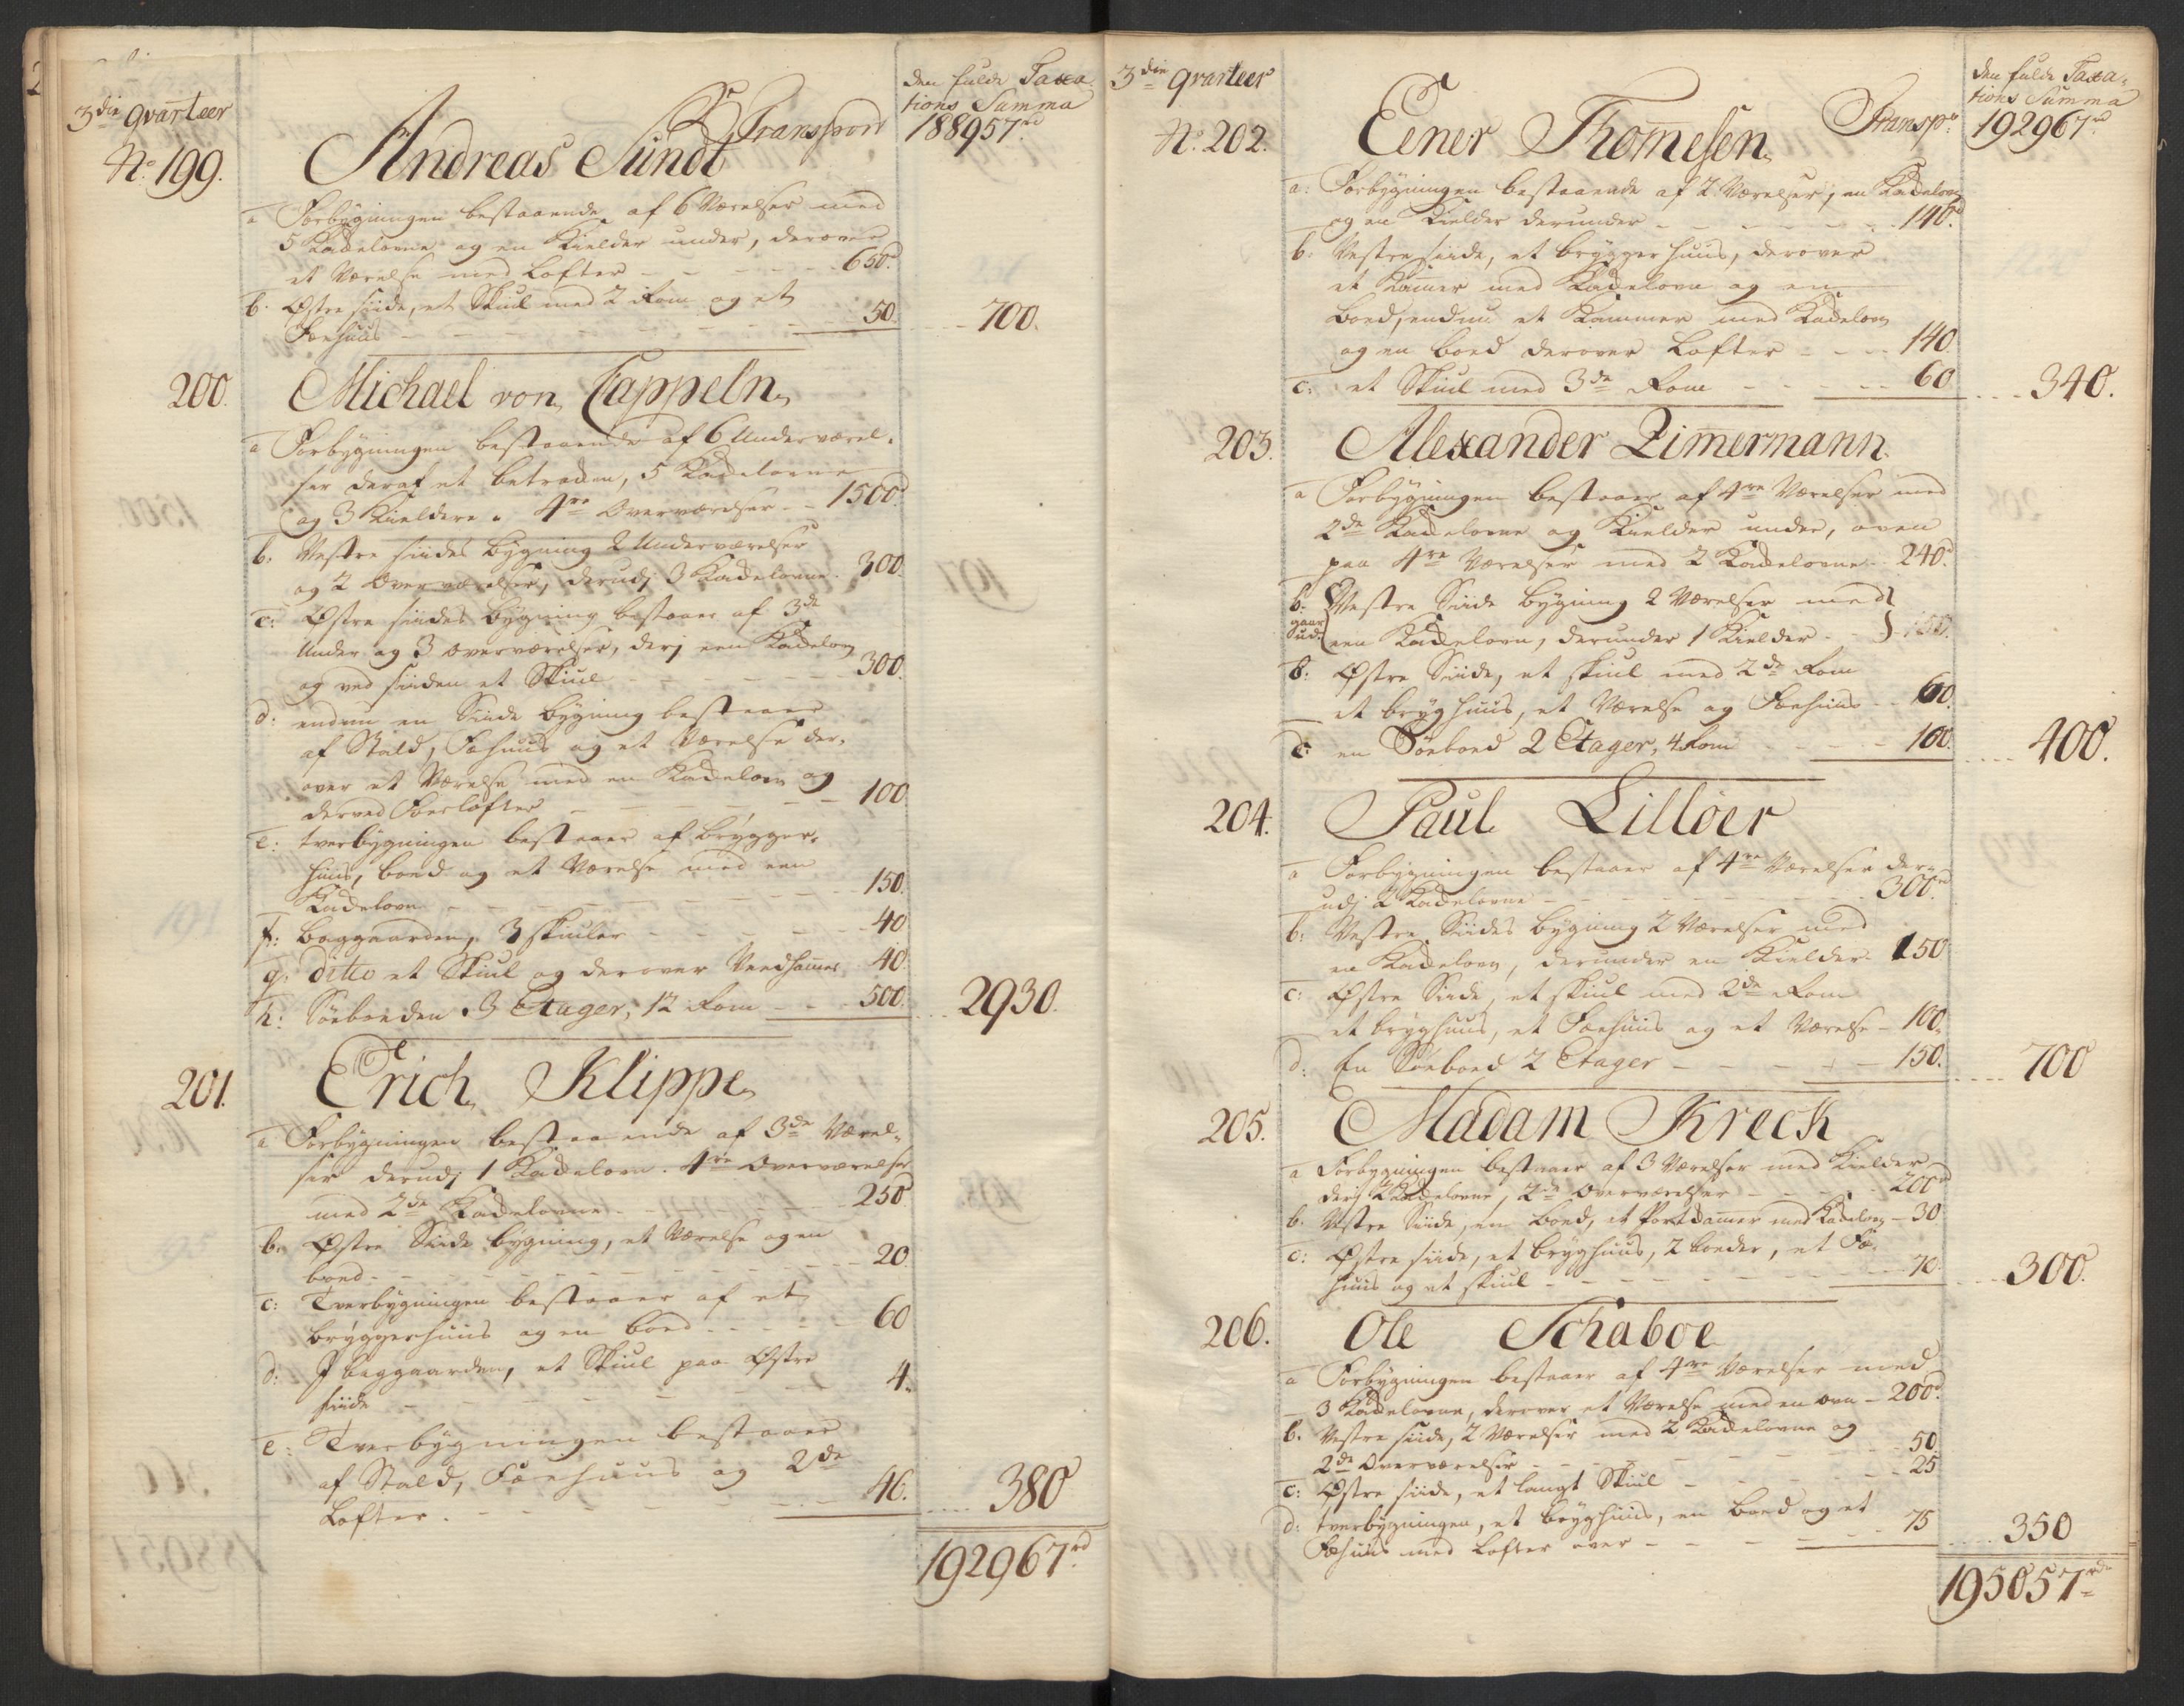 3die Qvarteer
den fulde Taxa-
tions Summa
Transport 188957rd
No 199.
Andreas Sundt
a Forbygningen bestaaende af 6 Værelser med
5 Kadelovne og en Kielder under, derover
et Værelse med Lofter - - - 650rd
b. Østre siide, et Skiul med 2 Rom og et
Foehuus - - - 50. 700.
200. Michael von Cappeln
a Forbygningen bestaaende af 6 Underværel-
ser deraf et betrocken, 5 Kadelovne
og 3 Kieldere. 4re Overværelser - - 1500rd
b. Vestre siides bygning 2 Underværelser
og 2 Overværelser, derudj 3 Kadelovne. 300.
c: Østre siides bygning bestaaer af 3de
Under og 3 overværelser, derj een Kadelovn
og ved siiden et Skiul - - - 300.
d: endnu en Siide bygning bestaaer
af Stald, Foehuus og et Værelse der-
over et Værelse med en Kadelovn og
derved Foerlofter - - - 100
e: tverbygningen bestaaer af brygger-
huus, boed og et Værelse med een
Kadelovn - - - 150.
f: baggaarden, 3 skiuler - - - 40
g: ditto et Skiul og derover 40.
h: Søeboeden 3 Etager, 12 Rom - - - 500. 2930.
201. Erich Klippe
a Forbygningen bestaaende af 3de Værel-
ser derudj 1 Kadelovn. 4re Overværelser
med 2de Kadelovne - - - 250
b. Østre Siide bygning, et Værelse og en
boed - - - 20
c: Tverbygningen bestaaer af et
bryggerhuus og en boed - - - 60
d: I baggaarden, et Skiul paa Østre
siide - - - 4.
e: Tverbygningen bestaaer
af Stald, Foehuus og 2de
Lofter. - - - 46. 380
192967rd
3die Qvarteer
den fulde Taxa-
tions Summa
Transpt 192967rd
No 202. Eener Thomesen
a: Forbygningen bestaaende af 2 Værelser, en Kadelovn
og en Kielder derunder - - - 140rd
b: Vestre siide, et bryggerhuus, derover
et Kamer med Kadelovn og en
boed, endnu et Kammer med Kadelovn
og en boed derover Lofter - - - 140
c: et Skiul med 3de Rom - - - 60 340.
203. Alexander Zimermann
a Forbygningen bestaaer af 4re Værelser med
2de Kadelovne og Kielder under, oven
paa 4re Værelser med 2 Kadelovne - 240rd
b. Vestre Siide bygning 2 Værelser med
gaar
ud.
een Kadelovn, derunder 1 Kielder -
b: Østre Siide, et skiul med 2de Rom
et bryghuus, et Værelse og Foehuus - 60.
c: en Søeboed 2 Etager, 4 Rom - - - 100. 400.
204. Paul Lilloer
a Forbygningen bestaaer af 4re Værelser der-
udj 2 Kadelovne - - - 300rd
b: Vestre Siides bygning 2 Værelser med
en Kadelovn, derunder en Kielder - 150
c: Østre Siide, et skiul med 2de Rom
et bryghuus, et Foehuus og et Værelse - 100.
d: En Søeboed 2 Etager - - - 150. 700
205. Madam Kreck
a Forbygningen bestaaer af 3 Værelser med Kielder
derj 2 Kadelovne, 2de Overværelser - - - 200rd
b. Vestre Siide, en boed, et med Kadelovn - 30
c: Østre siide, et bryghuus, 2 boeder, et Foe-
huus og et skiul - - - 70. 300.
206. Ole Schaboe
a Forbygningen bestaaer af 4re Værelser med
3 Kadelovne, derover et Værelse med en ovn - 200rd
b. Vestre siide, 2 Værelser med 2 Kadelovne og
2de Overværelser - - - 50
c: Østre siide, et langt Skiul - - - 25
d: tverbygningen, et bryghuus, en boed og et
Foehuus med Lofter over - - - 75 350
195057rd